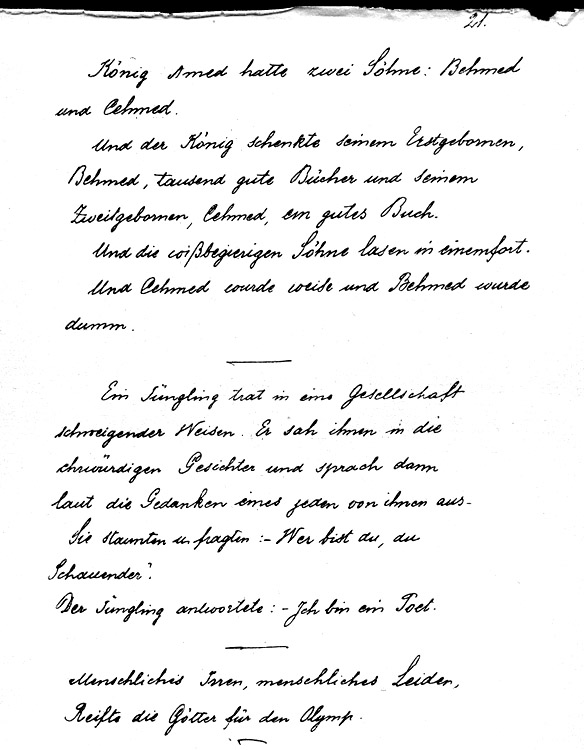 21.
König Amed hatte zwei Söhne: Behmed
und Cehmed.
Und der König schenkte seinem Erstgebornen,
Behmed, tausend gute Bücher und seinem
Zweitgebornen, Cehmed, ein gutes Buch.
Und die wißbegierigen Söhne lasen in einemfort.
Und Cehmed wurde weise und Behmed wurde
dumm.
Ein Jüngling trat in eine Gesellschaft
schweigender Weisen. Er sah ihnen in die
ehrwürdigen Gesichter und sprach dann
laut die Gedanken eines jeden von ihnen aus-
Sie staunten u. fragten :- Wer bist du, du
Schauender".
Der Jüngling antwortete :- Ich bin ein Poet.
Menschliches Irren, menschliches Leiden,
Reifte die Götter für den Olymp.